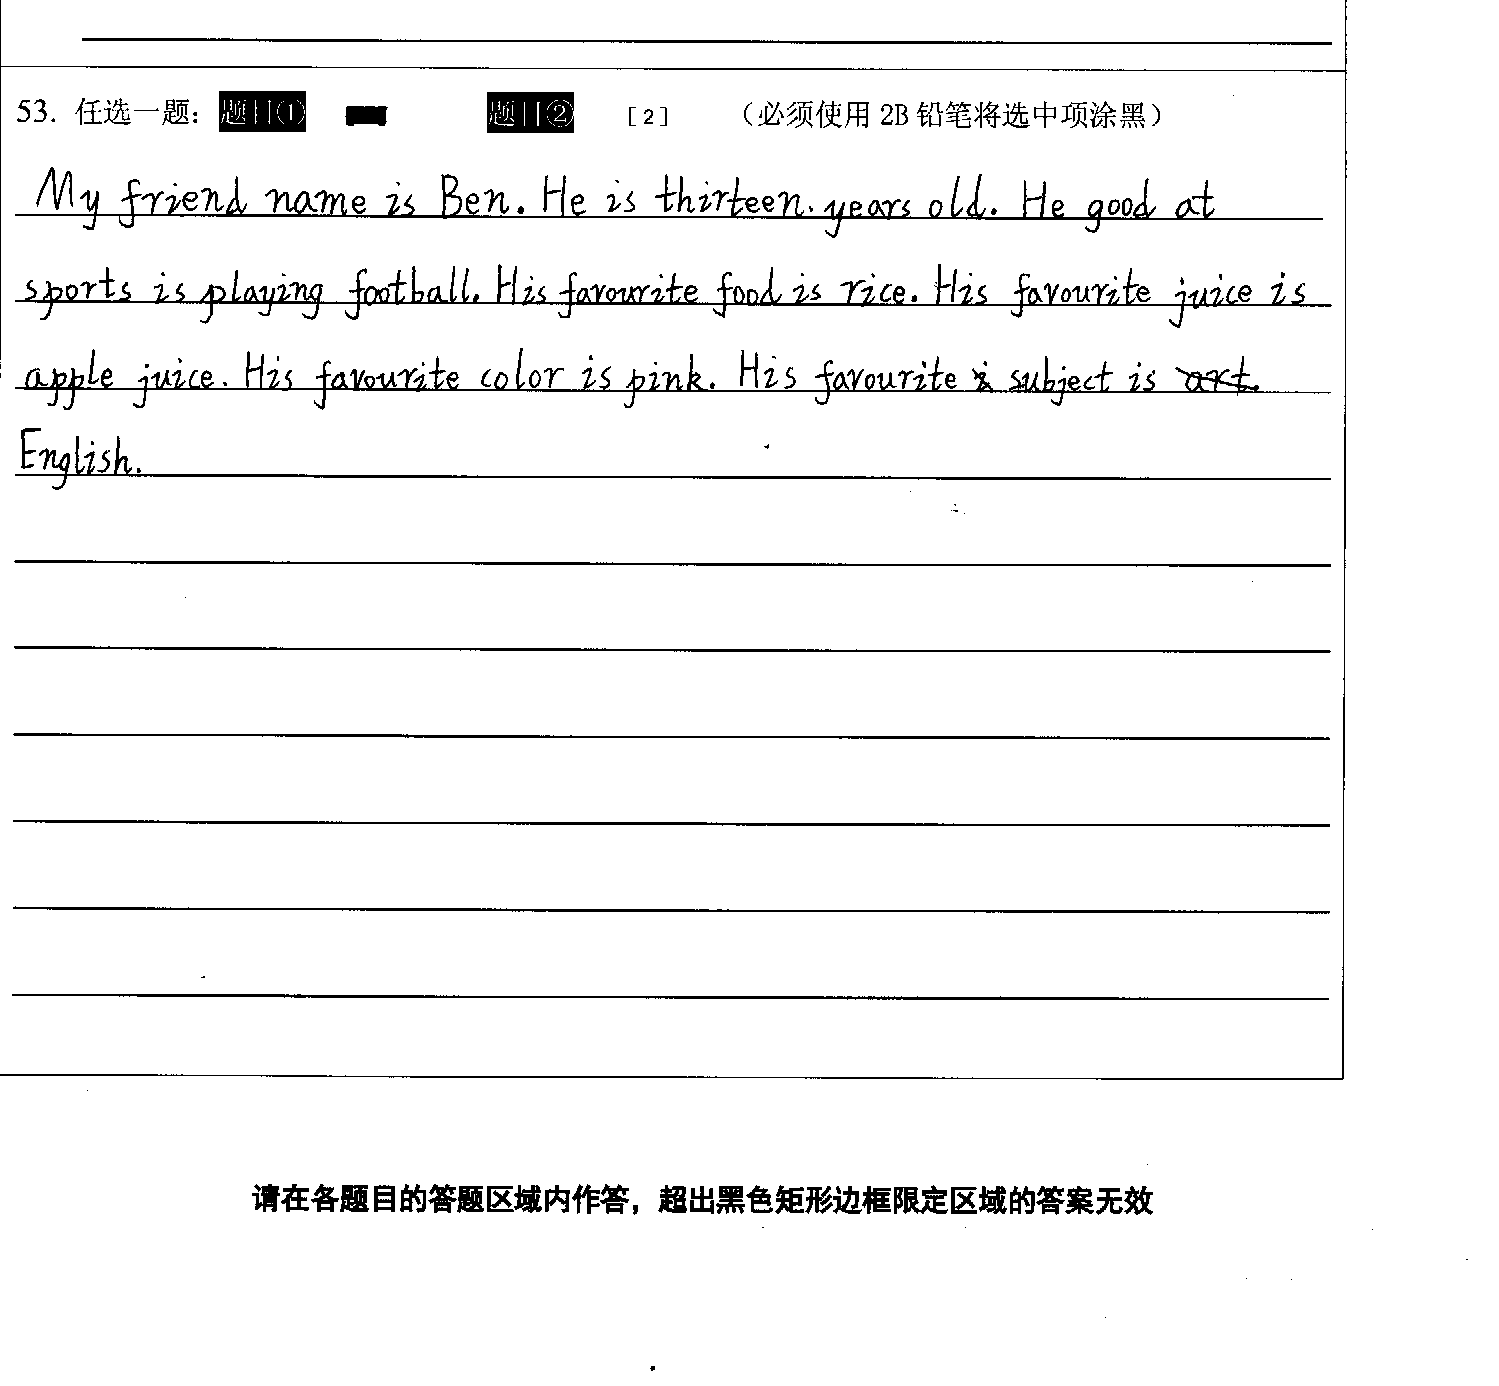 53. 任选一题： 题目① 题目② [2] （必须使用 2B 铅笔将选中项涂黑）
My friend name is Ben. He is thirteen. years old. He good at
sports is playing football. His favourite food is rice. His favourite juice is
apple juice. His favourite color is pink. His favourite subject is art.
English.
请在各题目的答题区域内作答，超出黑色矩形边框限定区域的答案无效